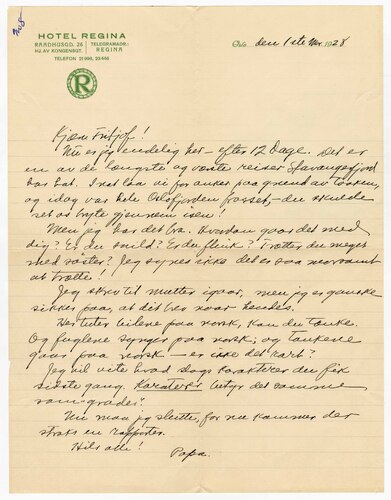 No 8
HOTEL REGINA
RAADHUSGD. 26
HJ. AV KONGENSGT.
TELEGRAMADR.:
REGINA
TELEFON 21 996, 23 466
R
Oslo, den 1ste Mar. 1928
Kjære Fritjof!
Nu er jeg endelig her – efter 12 Dage. Det er
en av de længste og værste reiser Stavangerfjord
har hat. I nat laa vi for anker paa grund av taaken,
og idag var hele Oslofjorden frosset – du skulde
set os bryte gjennem isen!
Men jeg har det bra. Hvordan gaar det med
dig? Er du snild? Er du flink? Trætter du meget
med søster? Jeg synes ikke det er saa morsomt
at trætte!
Jeg skrev til mutter igaar, men jeg er ganske
sikker paa, at dit brev naar hendes.
Her tuter bilene paa norsk, kan du tænke.
Og fuglene synger paa norsk, og taukene
gaar paa norsk – er ikke det rart?
Jeg vil vite hvad slags karakterer du fik
sidste gang. Karakter betyr det samme
som "grades".
Nu maa jeg slutte, for nu kommer der
straks en rapporter.
Hils alle!
Papa.